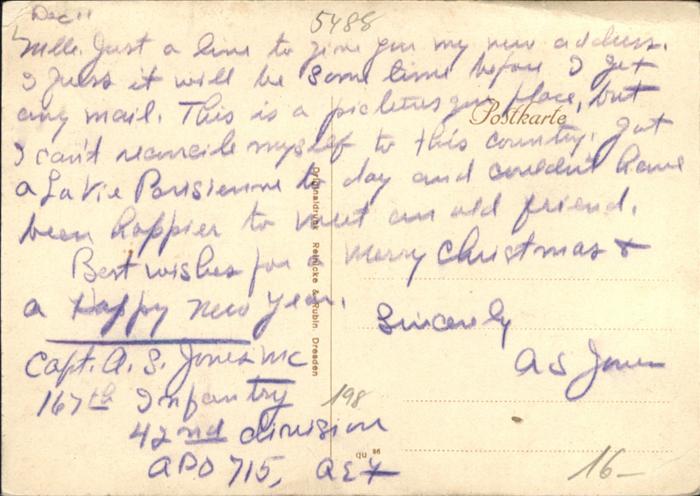 Dec 11
5488
Mlle. Just a line to give you my new address.
I guess it will be some time before I get
any mail. This is a picturesque place, but
Postkarte
I can't reconcile myself to this country. Got
a La Vie Parisienne to day and couldn't have
been happier to meet an old friend.
Best wishes for a Merry Christmas &
a Happy New Year.
Sincerely
A S Jones
Capt. A. S. Jones MC
167th Infantry
198
42nd division
APO 715, AEF
Originaldruck Reinicke & Rubin. Dresden
qu 86
16-